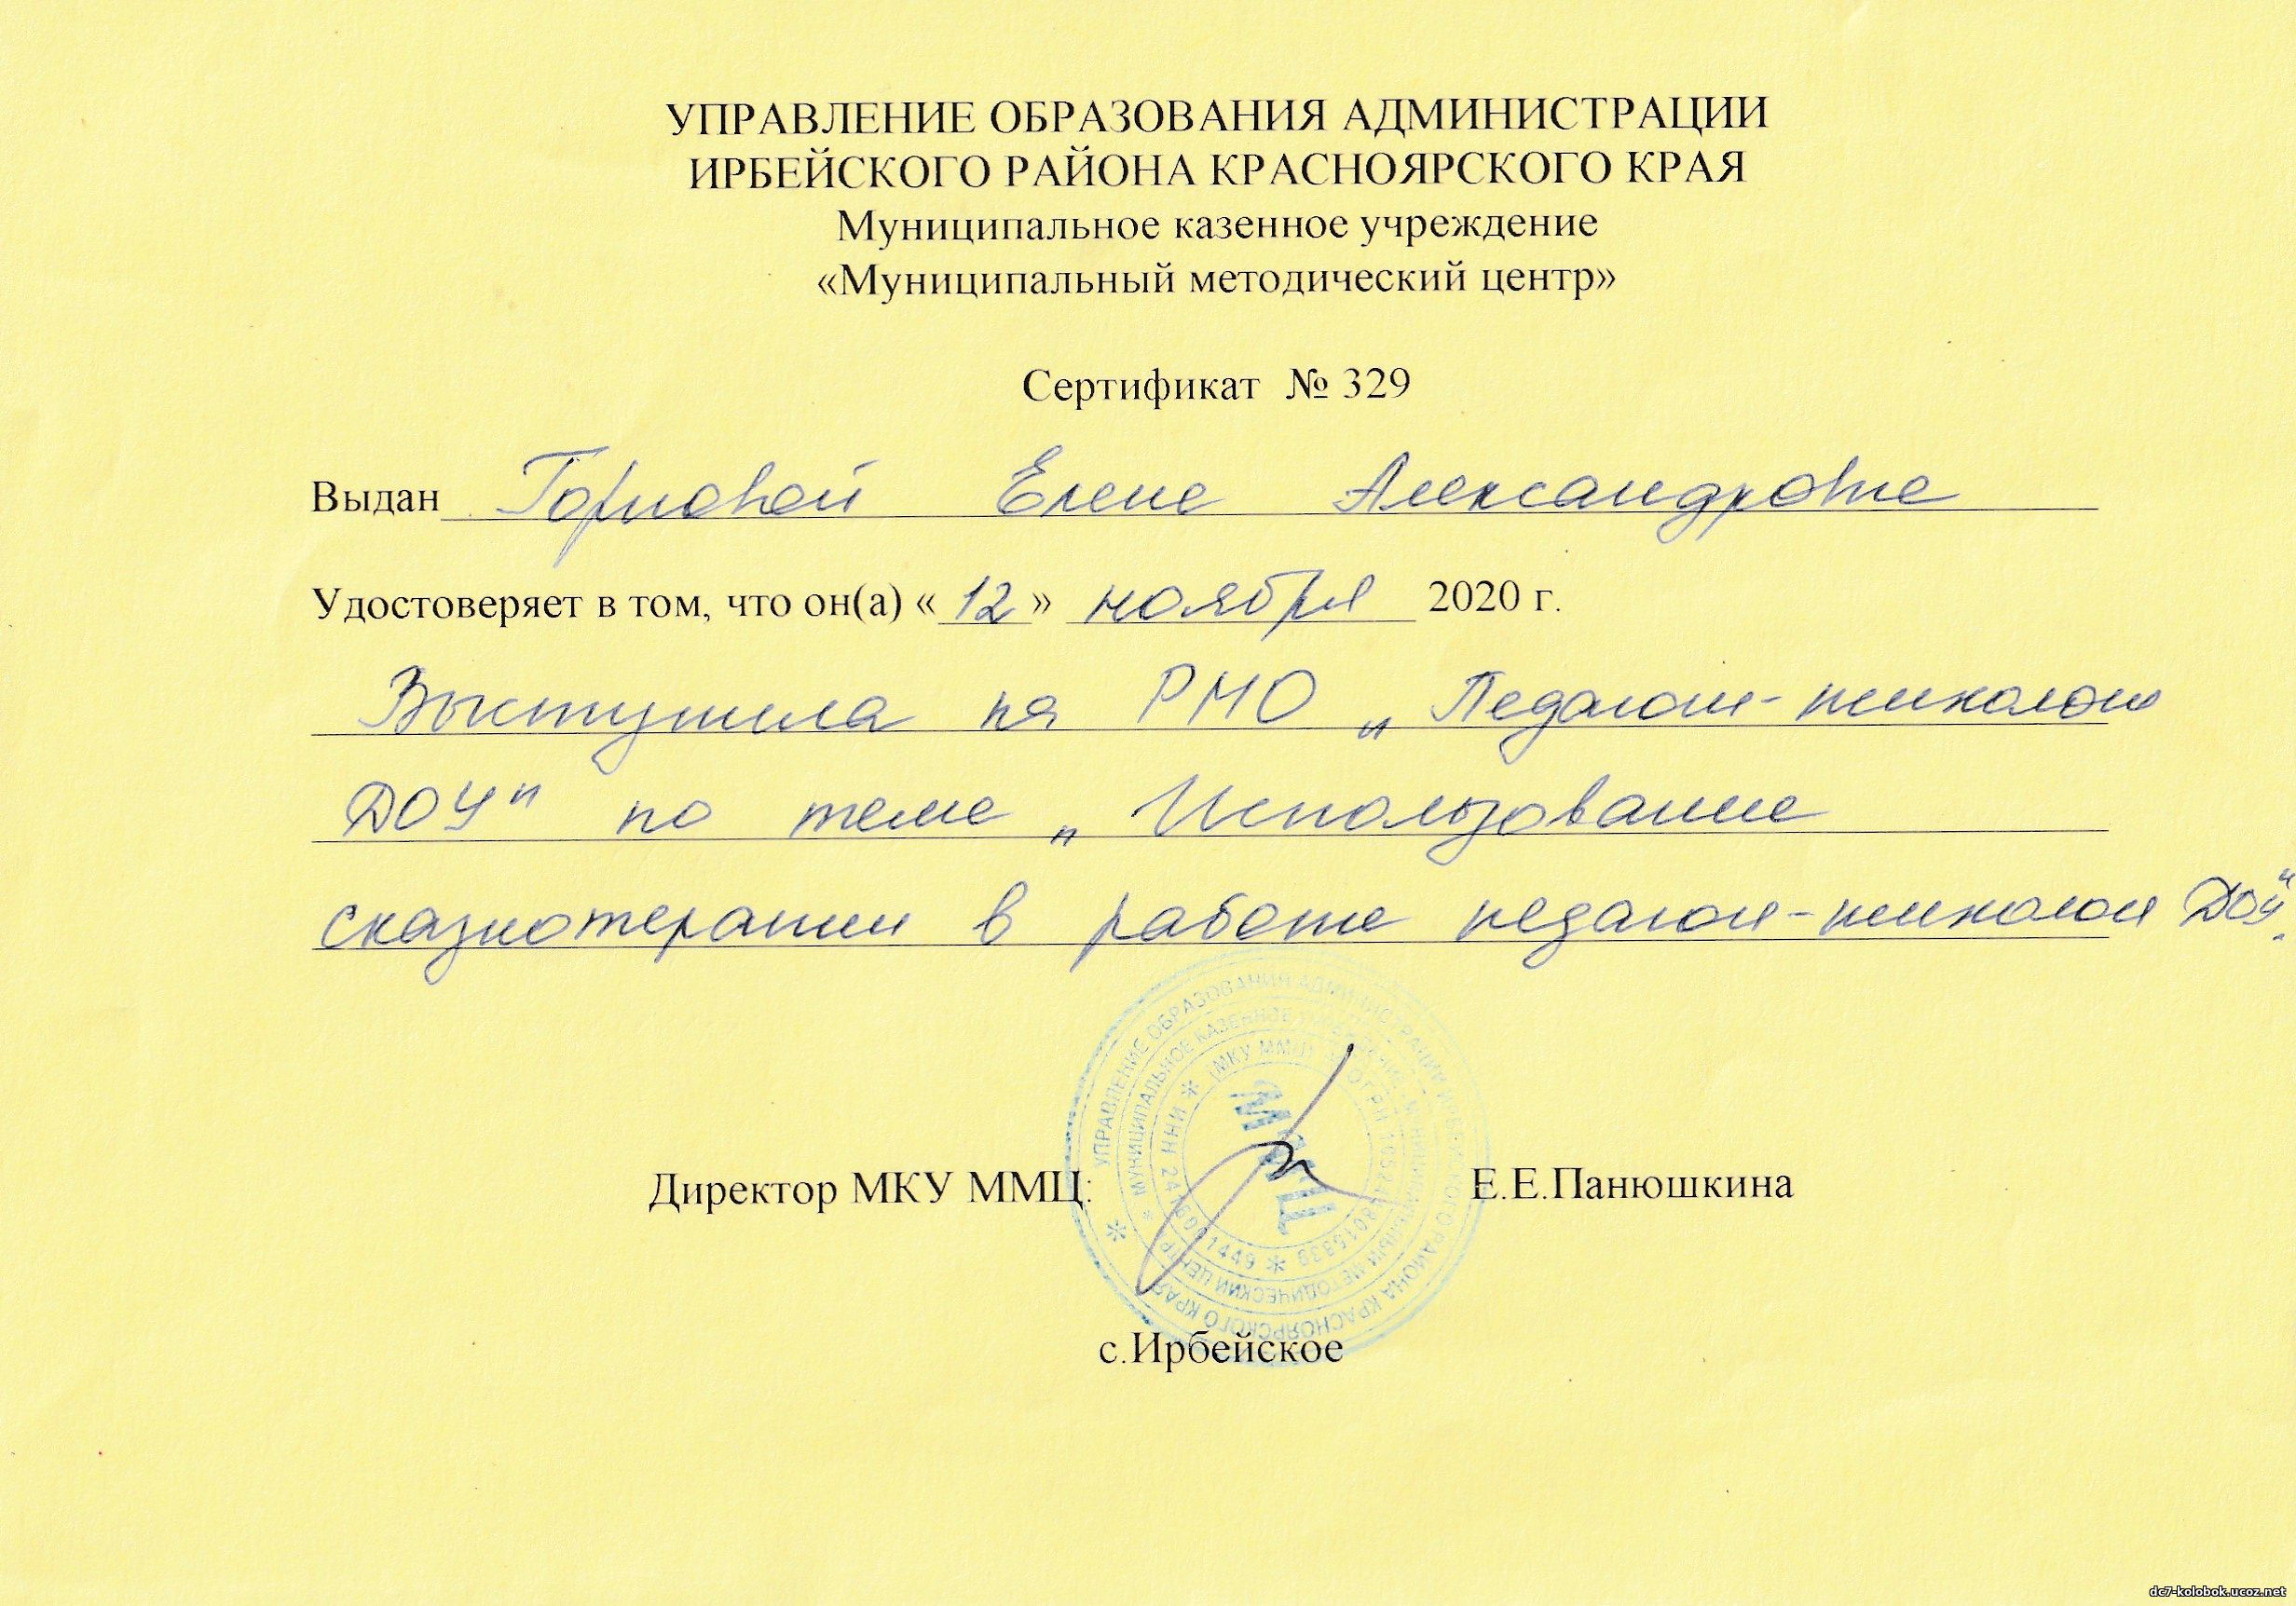 УПРАВЛЕНИЕ ОБРАЗОВАНИЯ АДМИНИСТРАЦИИ
ИРБЕЙСКОГО РАЙОНА КРАСНОЯРСКОГО КРАЯ
Муниципальное казенное учреждение
«Муниципальный методический центр»
Сертификат № 329
Выдан Горновой Елене Александровне
Удостоверяет в том, что он(а) «12» ноября 2020 г.
Выступила на РМО „Педагоги-психологи
ДОУ" по теме „Использование
сказкотерапии в работе педагога-психолога ДОУ".
УПРАВЛЕНИЕ ОБРАЗОВАНИЯ АДМИНИСТРАЦИИ ИРБЕЙСКОГО РАЙОНА КРАСНОЯРСКОГО КРАЯ
МУНИЦИПАЛЬНОЕ КАЗЕННОЕ УЧРЕЖДЕНИЕ МУНИЦИПАЛЬНЫЙ МЕТОДИЧЕСКИЙ ЦЕНТР
ММЦ
Директор МКУ ММЦ: Е.Е.Панюшкина
с.Ирбейское
dc7-kolobok.ucoz.net